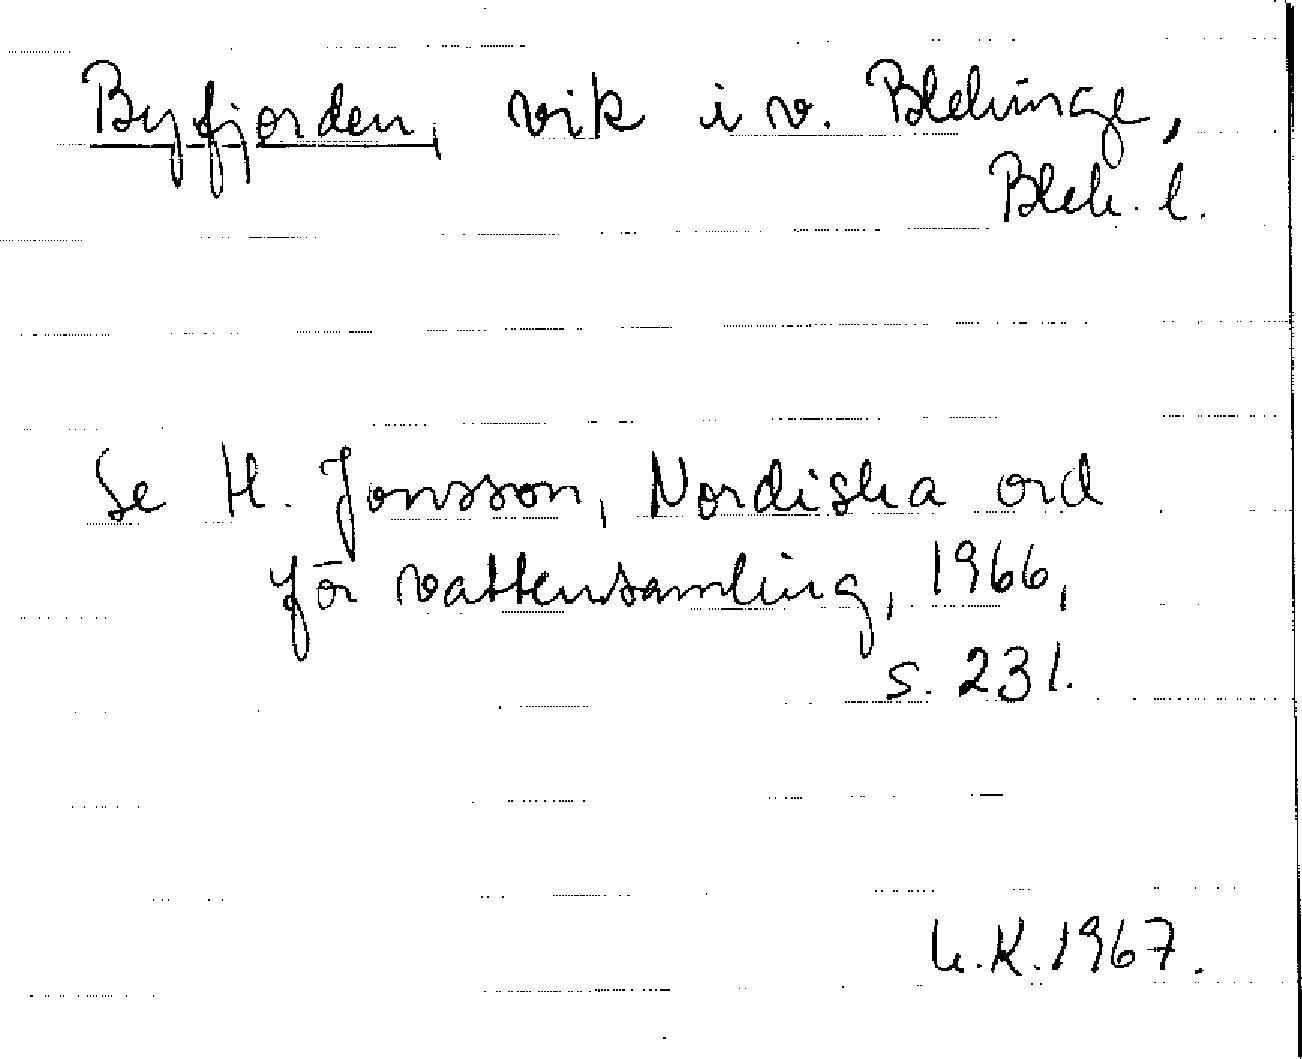 Byfjorden, vik i v. Blekinge,
Blek. l.
Se H. Jonsson, Nordiska ord
för vattensamling, 1966,
s. 231.
U.K. 1967.